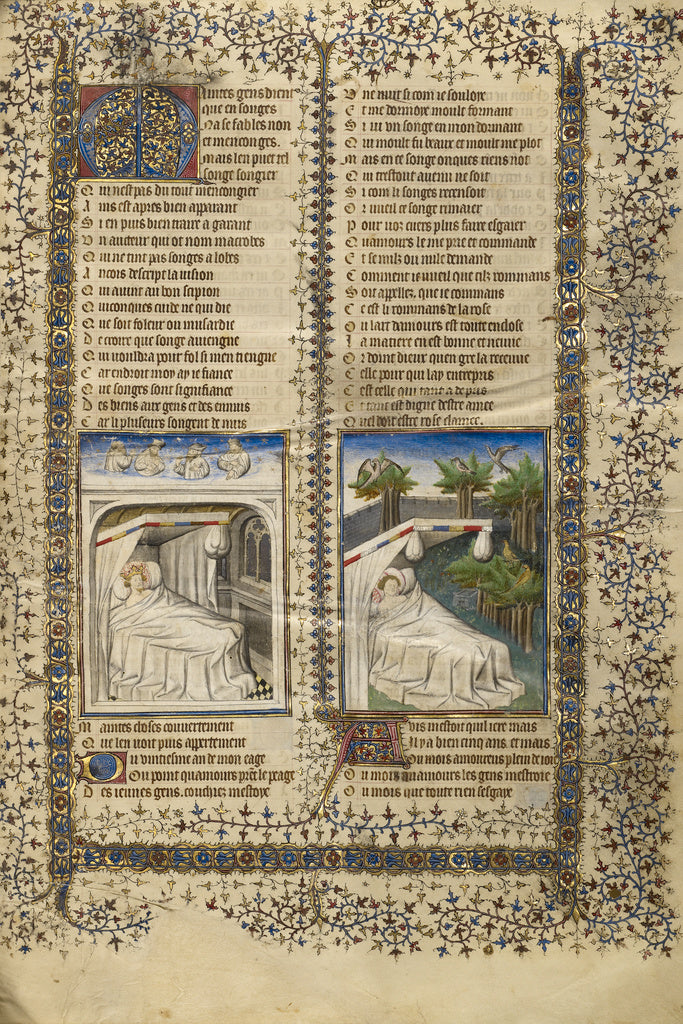 Maintes gens dient
que en songes
Na se fables non
et menconges.
mais len puet tel
songe songier
Qui nest pas du tout mencongier
Ains est apres bien apparant
Si en puis bien traire a garant
Vn aucteur qui ot nom macrobes
Qui ne tint pas songes a lobes
Ancois descript la uision
Qui auint au bon scipion
Quiconques cuide ne qui die
Que soit foleur ou musardie
De croire que songe auiengne
Qui uouldra pour fol si men tiengne
Car endroit moy ay ie fiance
Que songes sont signifiance
Des biens aux gens et des ennuis
Car li pluseurs songent de nuis
Maintes choses couuertement
Que len uoit puis apertement
Ou uintiesme an de mon eage
Ou point quamours prent le peage
Des ieunes gens. couchiez mestoye
Vne nuit si com ie souloye
Et me dormoye moult forment
Si ui vn songe en mon dormant
Qui moult fu beaux et moult me plot
Mais en ce songe onques riens not
Qui trestout auenu ne soit
Si com li songes recensoit
Or vueil ce songe rimaier
Pour uoz cuers plus faire esgaier
Quamours le me prie et commande
Et se nulz ou nule demande
Comment ie vueil que cilz rommans
Soit appellez, que ie commans
Ce est li rommans de la rose
Ou lart damours est toute enclose
La matiere en est bonne et neuue
Or doint dieux quen gre la receuue
Celle pour qui lay entrepris
Cest celle qui tant a de pris
Et tant est digne destre amee
Quel doit estre rose clamee.
Auis mestoit quil iere mais
Il y a bien cinq ans et mais
Ou mois amoureux plein de ioie
Ou mois quamours les gens mestroie
Ou mois que toute rien sesgaye